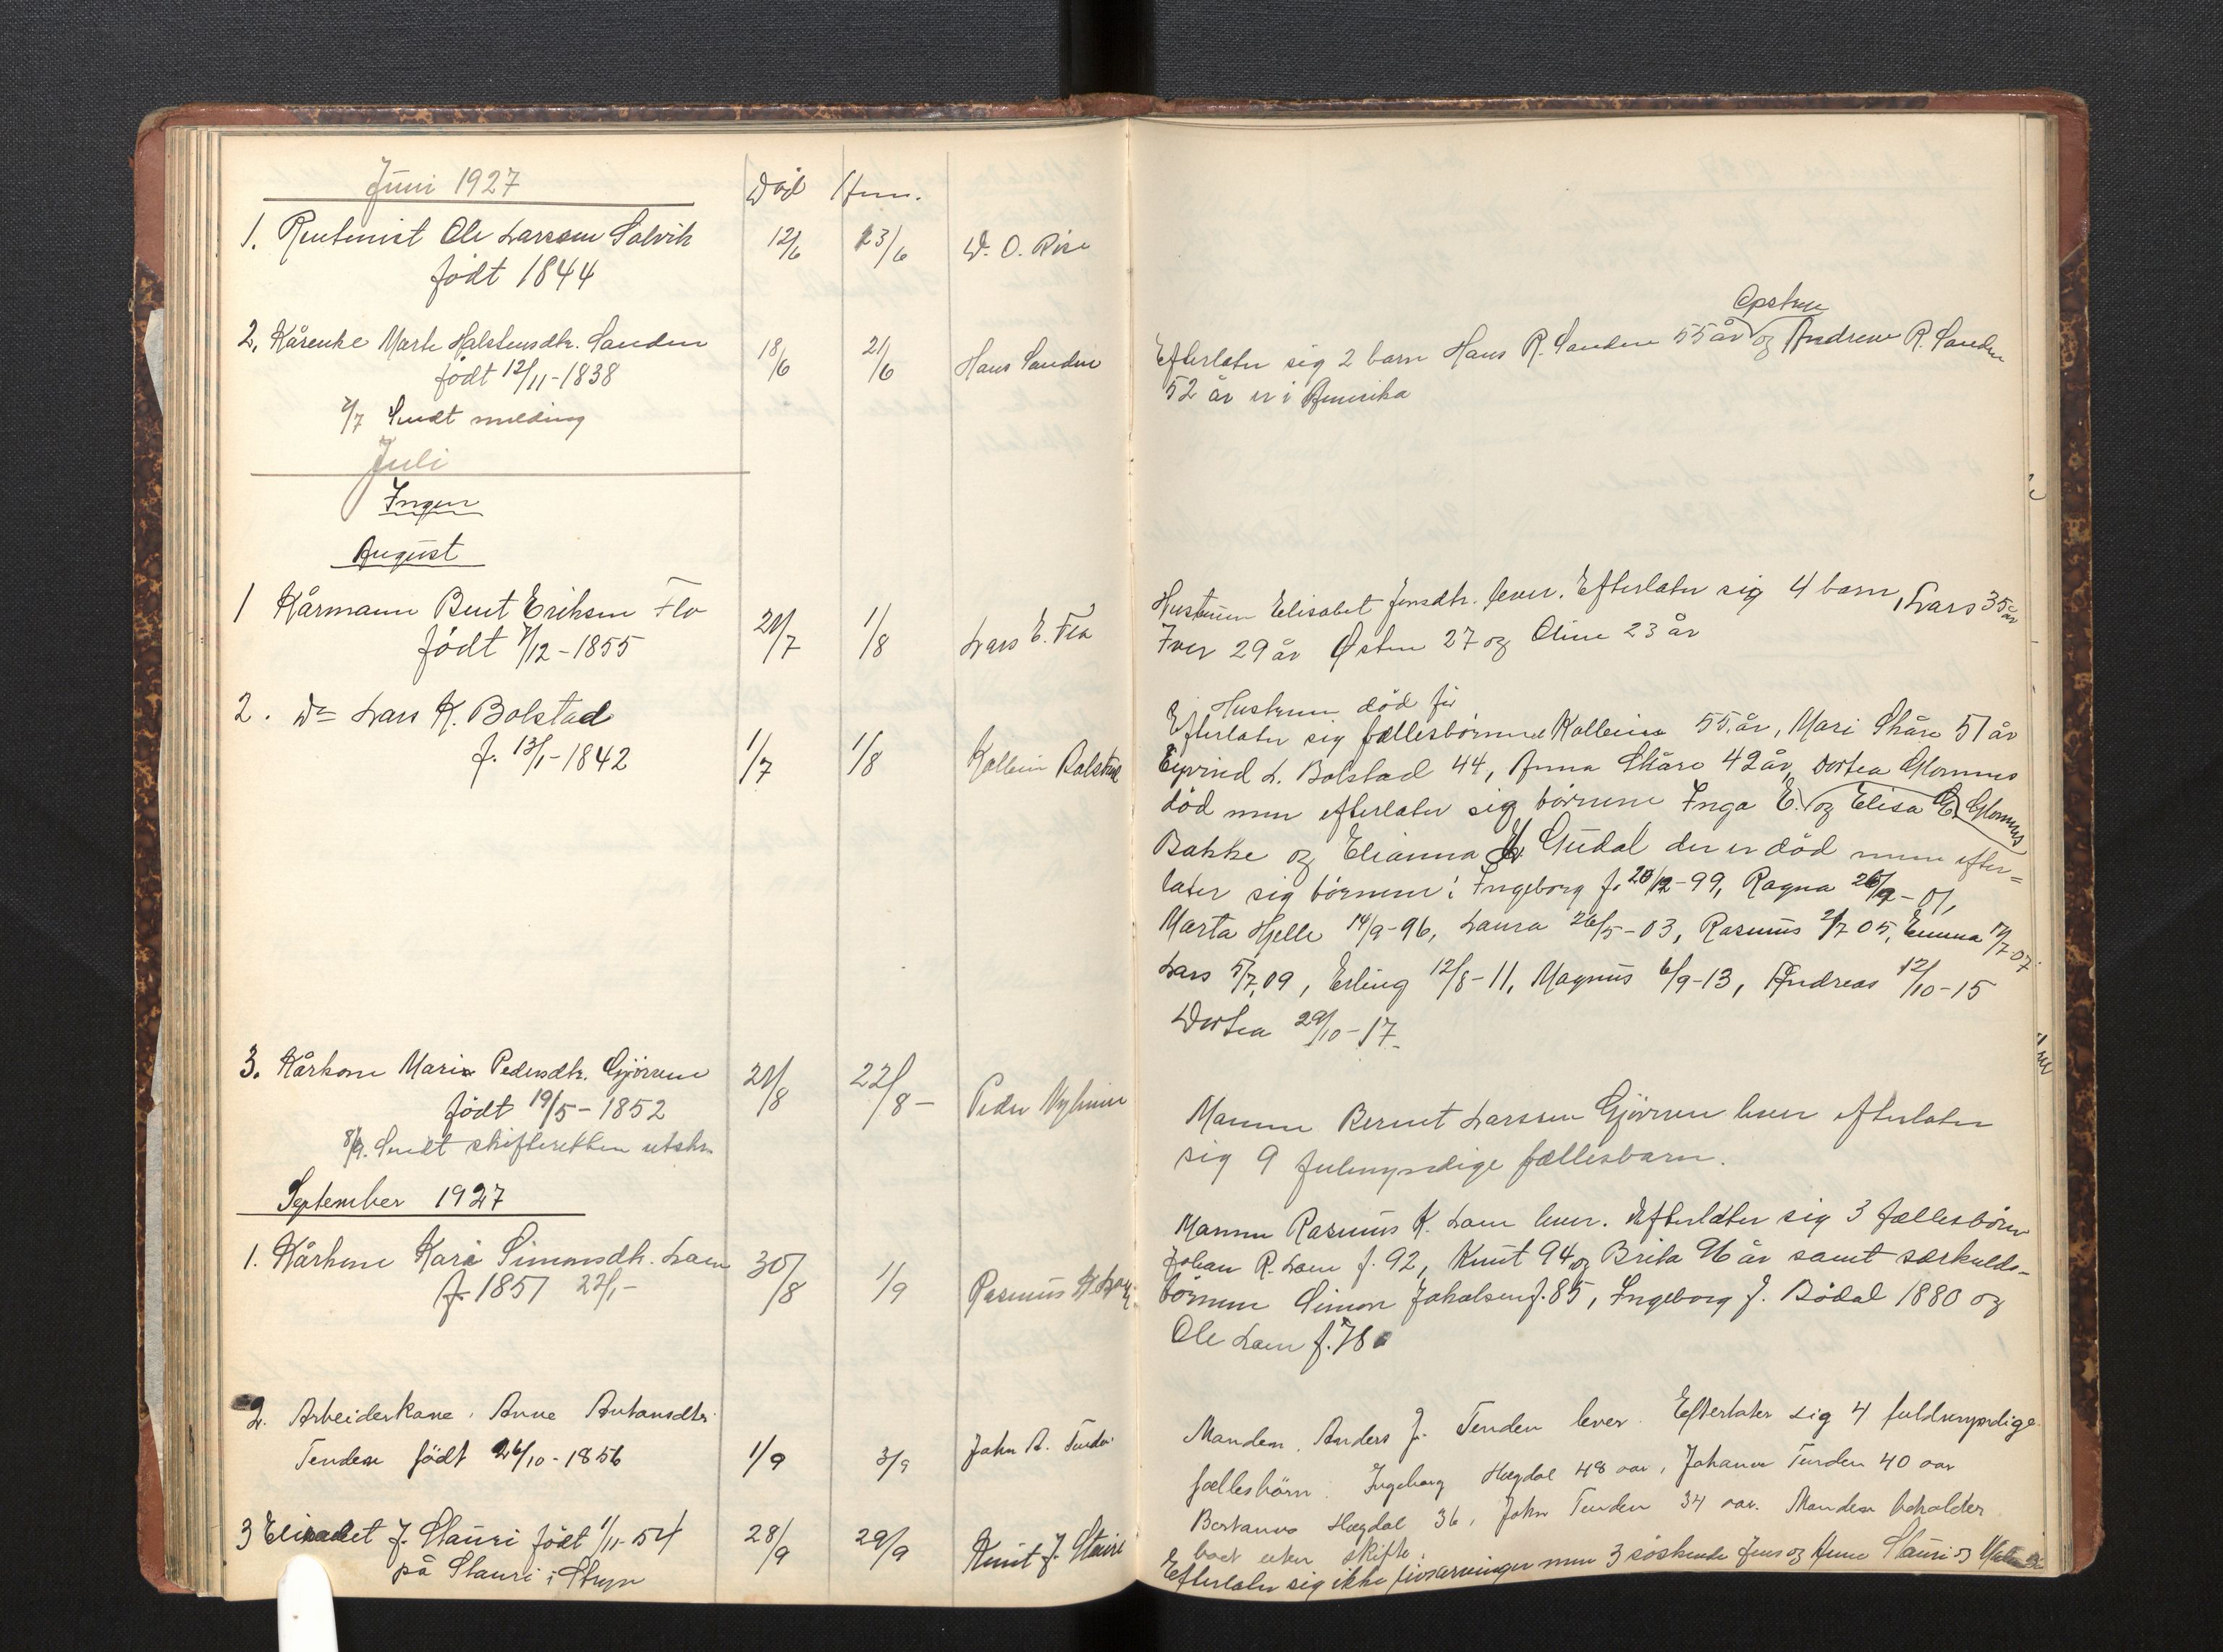 Juni 1927
Död Anm.
1. Rentenist Ole Larssen Solvik 12/6 23/6 W. O. Rise
födt 1844
Opstryn
2. Kårenke Marte Halstensdtr. Sanden 18/6 21/6 Hans Sanden
födt 12/11-1838
2/7 Sendt melding
Efterlater sig 2 barn Hans R. Sanden 55 år og Andreas R. Sanden
52 år er i Amerika
Juli
Ingen
August
1 Kårmann Bent Eriksen Flo 21/7 1/8 Lars E. Flo
født 7/12-1855
Hustruen Elisabet Jensdtr. lever. Efterlater sig 4 barn, Lars 35 år
Iver 29 år Østen 27 og Oline 23 år
2. Do Lars K. Bolstad 1/7 1/8 Kolbein Bolstad
f. 13/1-1842
Hustruen död før
Efterlater sig fællesbörnene Kolbein 55 år, Mari Skåre 51 år
Eyvind L. Bolstad 44, Anna Skåre 42 år, Dortea Glomnes
död men efterlater sig börnene Inga E. og Elisa E. Glomnes
Bakke og Elianna Gudal der er död men efter=
later sig børnene: Ingeborg f. 20/12-99, Ragna 26/9-01,
Marta Hjelle 14/9-96, Laura 26/5-03, Rasmus 2/7 05, Emma 17/7-07
Lars 5/7 09, Erling 12/8-11, Magnus 6/9-13, Andreas 12/10-15
Dortea 29/10-17.
3. Kårkone Mari Pedersdtr. Gjörven 21/8 22/8- Peder Myhren
födt 19/5-1852
8/9. Sendt skifteretten utskr.
Mannen Bernt Larssen Gjörven lever efterlater
sig 9 fulmyndige fællesbarn.
September 1927
1. Kårkone Kari Simonsdtr. Loen 30/8 1/9 Rasmus K. Loen
f. 1851 22/1-
Mannen Rasmus K. Loen lever. Efterlater sig 3 fællesbörn
Johan R. Loen f. 92, Knut 94 og Brita 96 år samt særkulds-
börnene Simon Jakobsen f. 85, Ingeborg J. Bödal 1880 og
Ole Loen f. 78
2. Arbeiderkone, Anne Antonsdtr. 1/9 3/9 John A. Tenden
Tenden födt 26/10-1856
Manden, Anders J. Tenden lever. Efterlater sig 4 fuldmyndige
fællesbörn. Ingeborg Hægdal 48 aar, Johanne Tenden 40 aar
Bertanus Hægdal 36, John Tenden 34 aar. Manden beholder
boet uten skifte.
3 Elisabet J. Stauri födt 1/11-54 28/9 29/9 Knut J. Stauri
på Stauri i Stryn
Efterlater sig ikke livsarvinger men 3 søskende Jens og Anne Stauri og